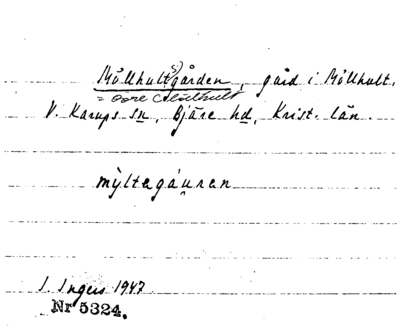 Möllhultsgården, gård i Möllhult,
= övre
V. Karups sn, Bjäre hd, Krist. län.
mýltegáuren
I. Ingers 1947
Nr 5324.